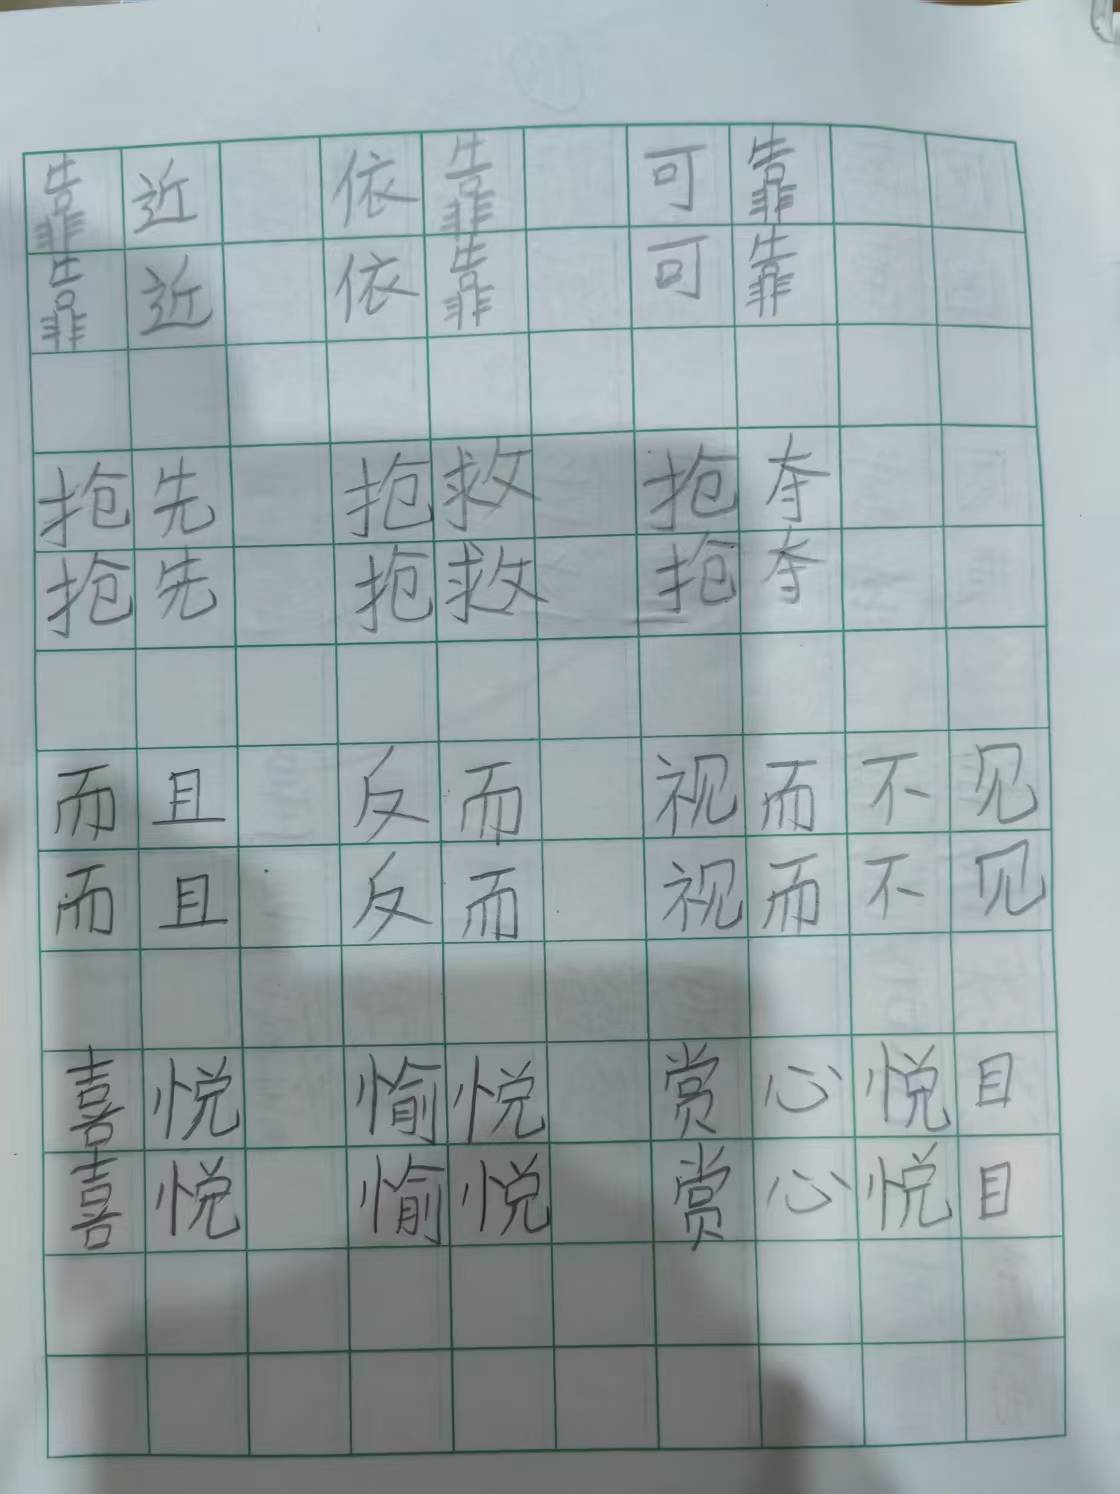 靠近 依靠 可靠
靠近 依靠 可靠
抢先 抢救 抢夺
抢先 抢救 抢夺
而且 反而 视而不见
而且 反而 视而不见
喜悦 愉悦 赏心悦目
喜悦 愉悦 赏心悦目